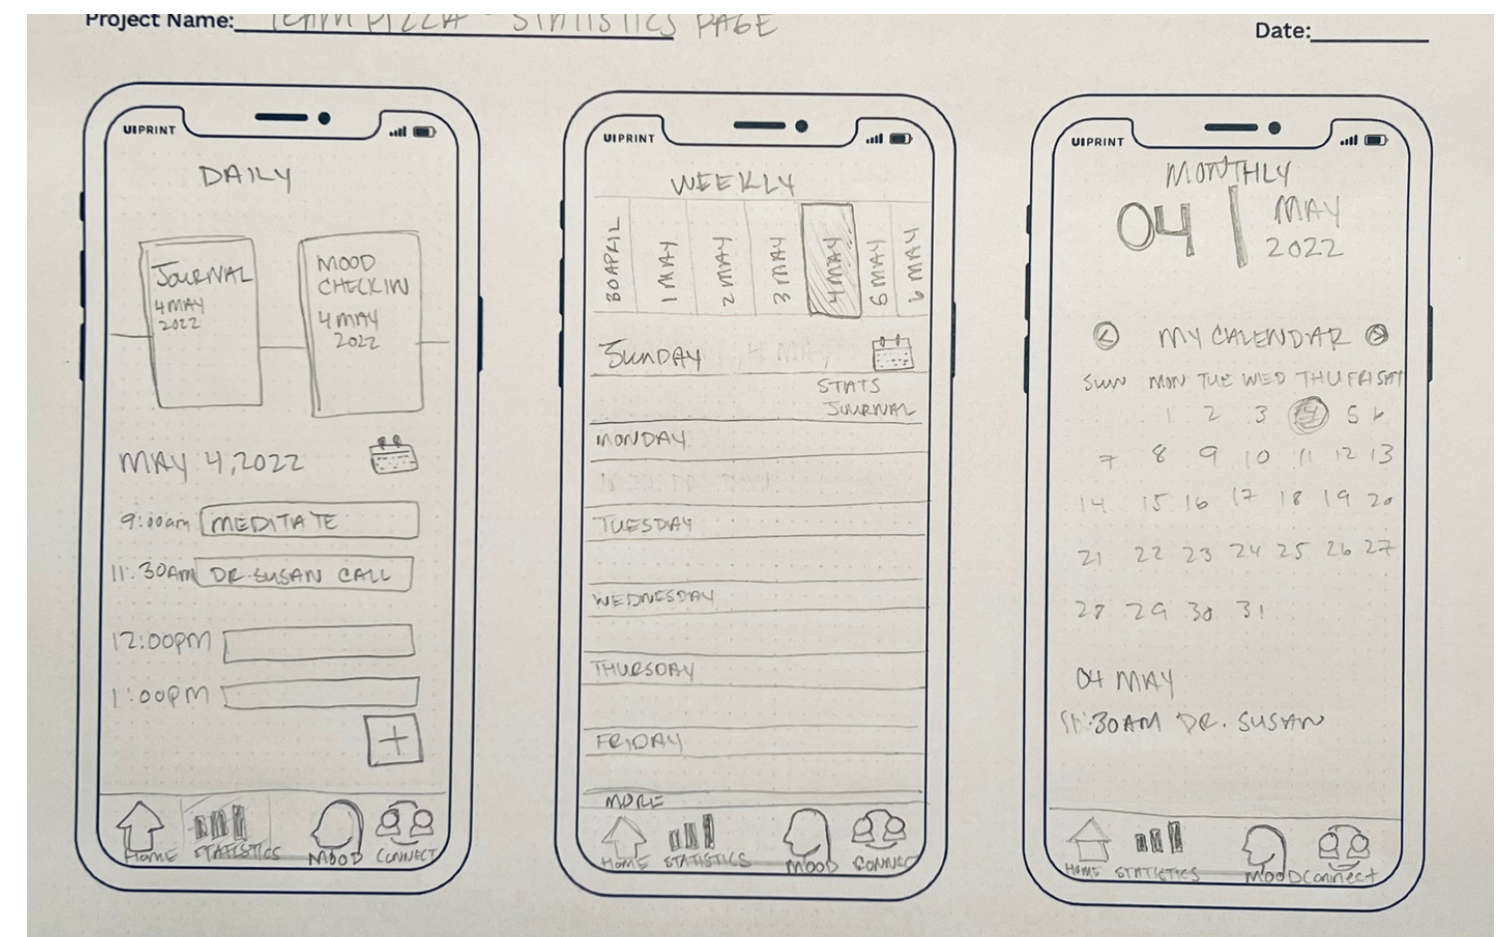 Project Name: TEAM PIZZA - STATISTICS PAGE
Date:
UIPRINT
DAILY
JOURNAL
4 MAY
2022
MOOD
CHECKIN
4 MAY
2022
MAY 4, 2022
9:00am MEDITATE
11:30AM DR. SUSAN CALL
12:00PM
1:00PM
+
HOME STATISTICS MOOD CONNECT
UIPRINT
WEEKLY
30 APRIL
1 MAY
2 MAY
3 MAY
4 MAY
6 MAY
6 MAY
SUNDAY
STATS
JOURNAL
MONDAY
TUESDAY
WEDNESDAY
THURSDAY
FRIDAY
MORE
HOME STATISTICS MOOD CONNECT
UIPRINT
MONTHLY
04 | MAY
2022
< MY CALENDAR >
SUN MON TUE WED THU FRI SAT
1 2 3 4 5 6
7 8 9 10 11 12 13
14 15 16 17 18 19 20
21 22 23 24 25 26 27
28 29 30 31
04 MAY
11:30AM DR. SUSAN
HOME STATISTICS MOOD Connect